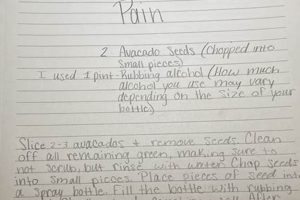 Pain
2 Avacado Seeds (Chopped into
small pieces)
I used 1 pint-Rubbing alcohol (How much
alcohol you use may vary
depending on the size of your
bottle)
Slice 2-3 avacados + remove seeds. Clean
off all remaining green, making sure to
not scrub, but rinse with water. Chop seeds
into small pieces. Place pieces of seed into
a spray bottle. Fill the bottle with rubbing
After